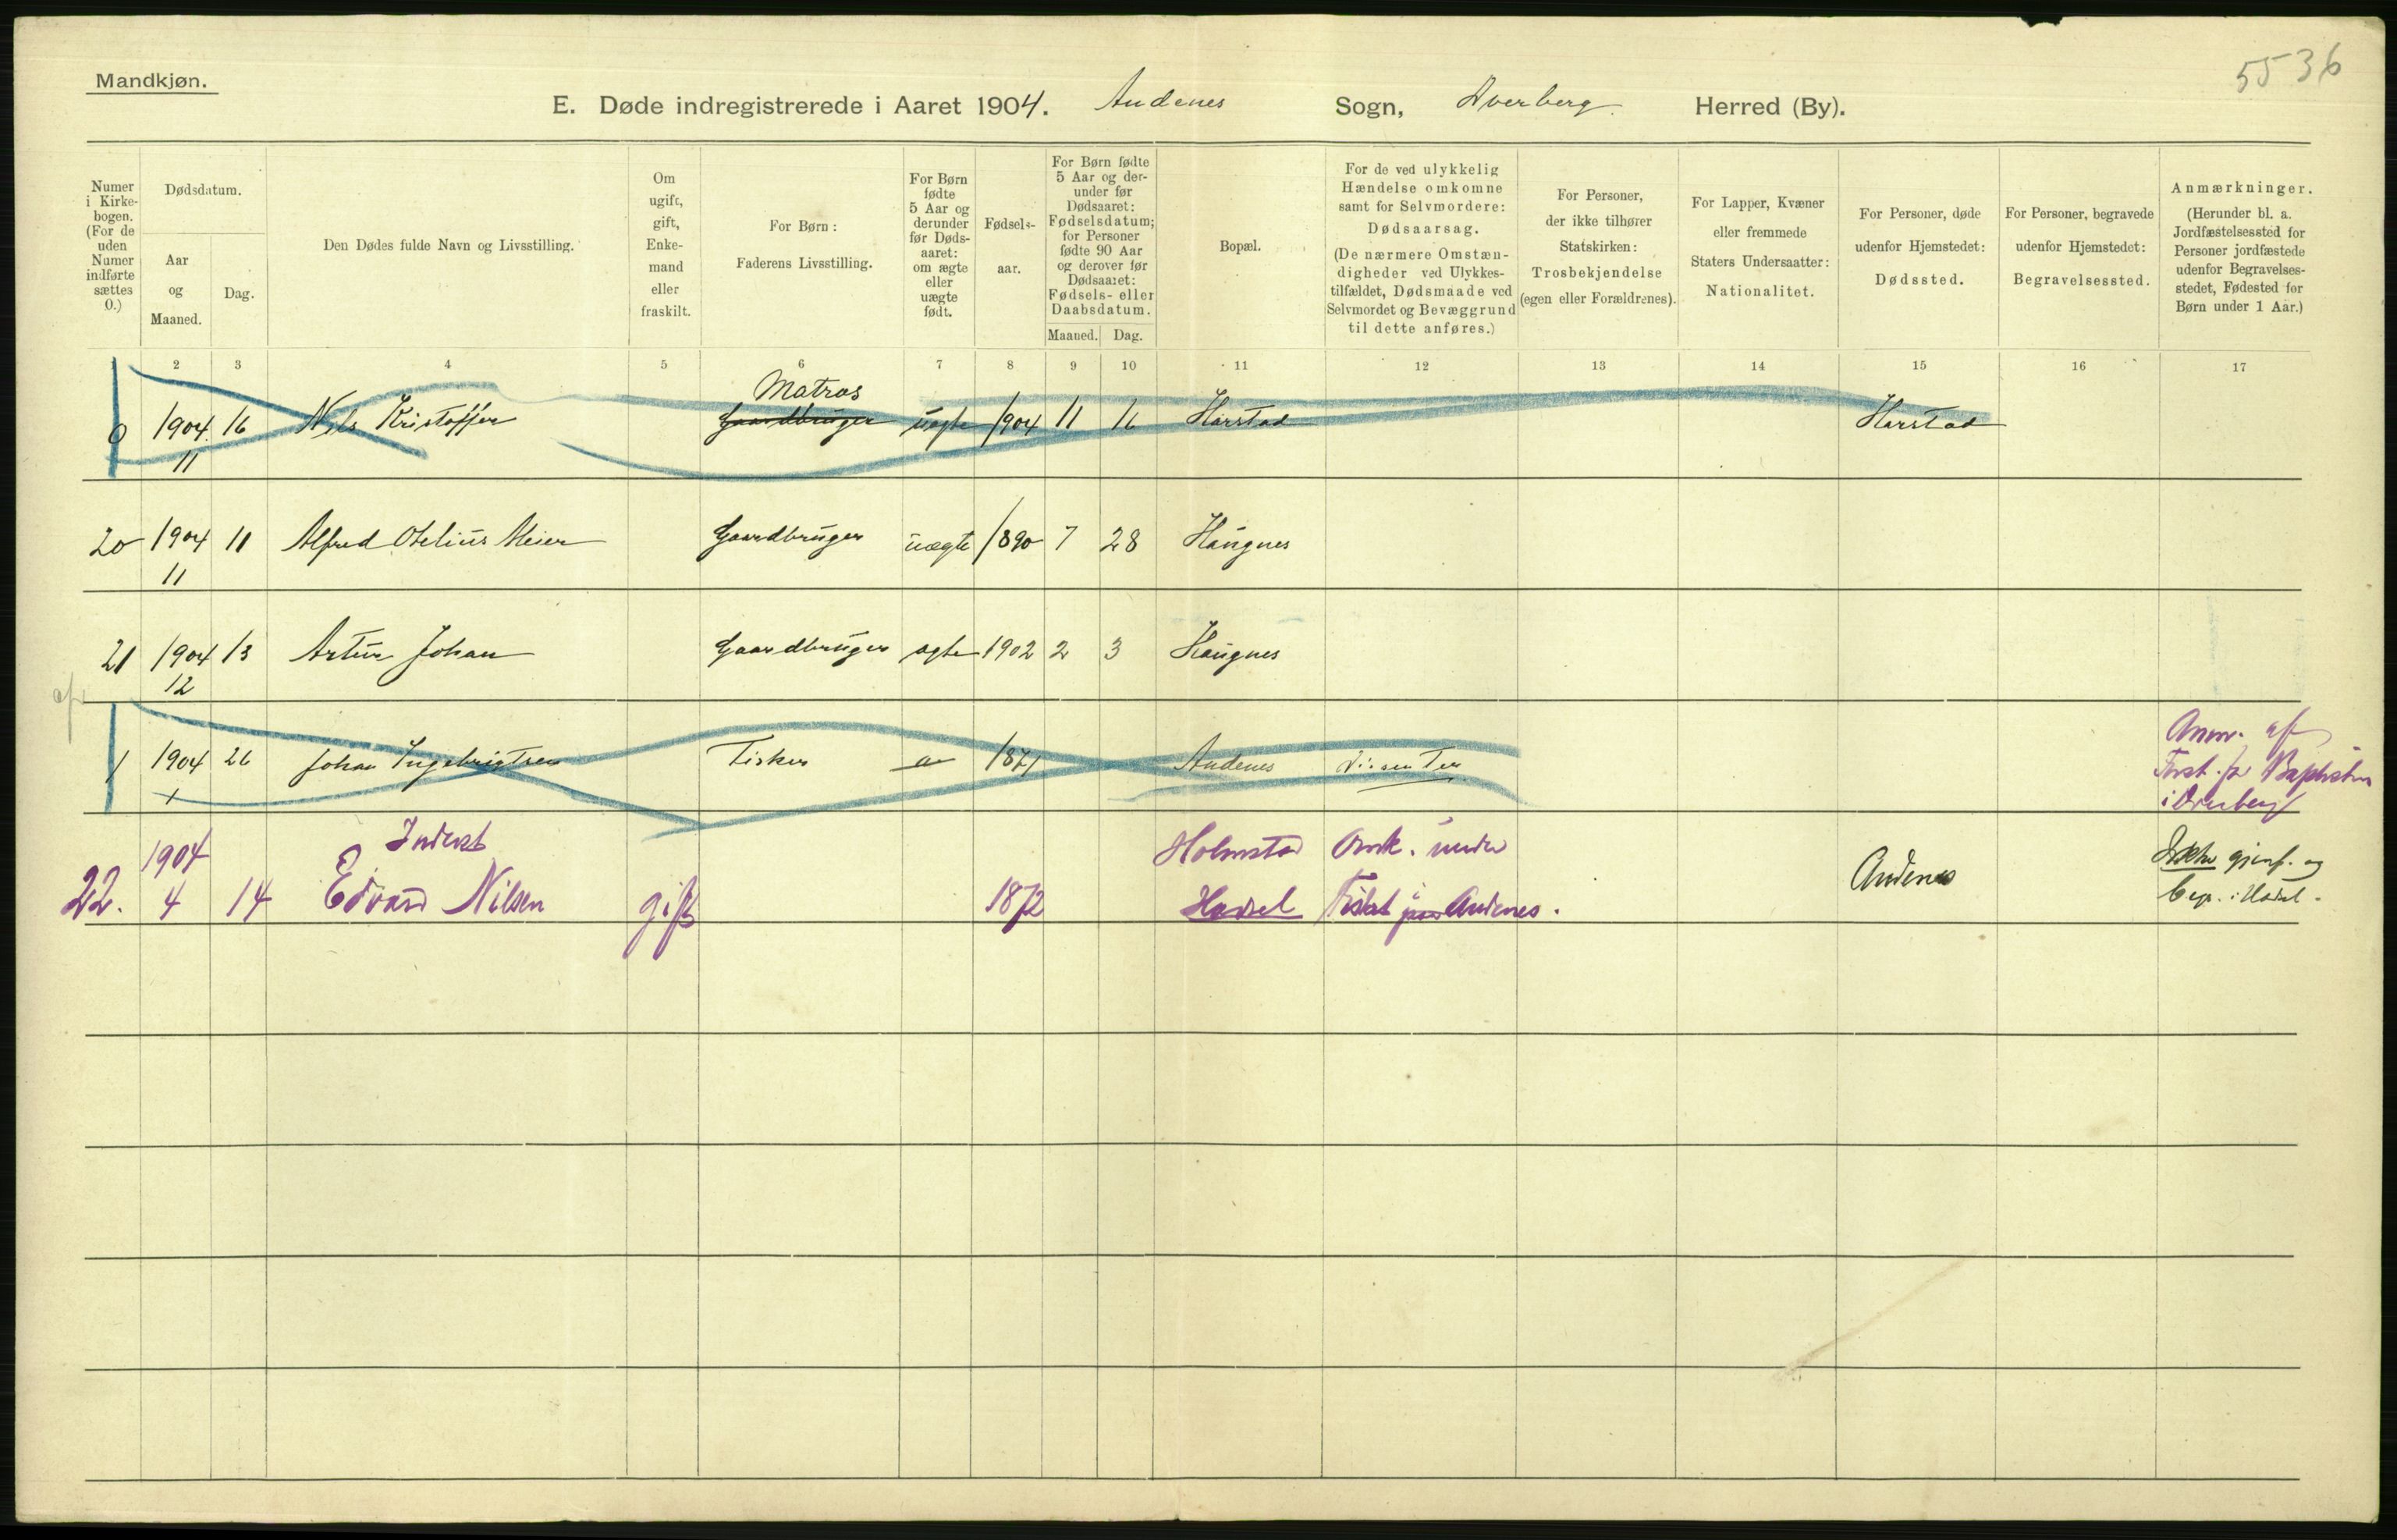 Mandkjøn.
5536
E. Døde indregistrerede i Aaret 1904. Andenes Sogn, Dverberg Herred (By).
Numer i Kirkebogen. (For de uden Numer indførte sættes 0.)
Dødsdatum.
Aar og Maaned.
Dag.
Den Dødes fulde Navn og Livsstilling.
Om ugift, gift, Enkemand eller fraskilt.
For Børn: Faderens Livsstilling.
For Børn fødte 5 Aar og derunder før Dødsaaret: om ægte eller uægte født.
Fødselsaar.
For Børn fødte 5 Aar og derunder før Dødsaaret: Fødselsdatum; for Personer fødte 90 Aar og derover før Dødsaaret: Fødsels- eller Daabsdatum.
Maaned. Dag.
Bopæl.
For de ved ulykkelig Hændelse omkomne samt for Selvmordere: Dødsaarsag. (De nærmere Omstændigheder ved Ulykkestilfældet, Dødsmaade ved Selvmordet og Bevæggrund til dette anføres.)
For Personer, der ikke tilhører Statskirken: Trosbekjendelse (egen eller Forældrenes).
For Lapper, Kvæner eller fremmede Staters Undersaatter: Nationalitet.
For Personer, døde udenfor Hjemstedet: Dødssted.
For Personer, begravede udenfor Hjemstedet: Begravelsessted.
Anmærkninger. (Herunder bl. a. Jordfæstelsessted for Personer jordfæstede udenfor Begravelsesstedet, Fødested for Børn under 1 Aar.)
2 3 4 5 6 7 8 9 10 11 12 13 14 15 16 17
Matros
0 1904 16 Nils Kristoffer Gaardbruger uægte 1904 11 16 Harstad Harstad
11
20 1904 11 Alfred Otelius Meier Gaardbruger uægte 1890 7 28 Haugnes
11
21 1904 13 Artur Johan Gaardbruger ægte 1902 2 3 Haugnes
12
1 1904 26 Johan Ingebrigtsen Fisker 1871 Andenes
Anm. af
Forst. for Baptister
i Dverberg
1904 Inderst Holmstad Omk. under
22. 4 14 Edvard Nilsen gift 1872 Hadsel Fiskeri Andenes. Andenes
Ikke gjenf. og
begr. i Hadsel.